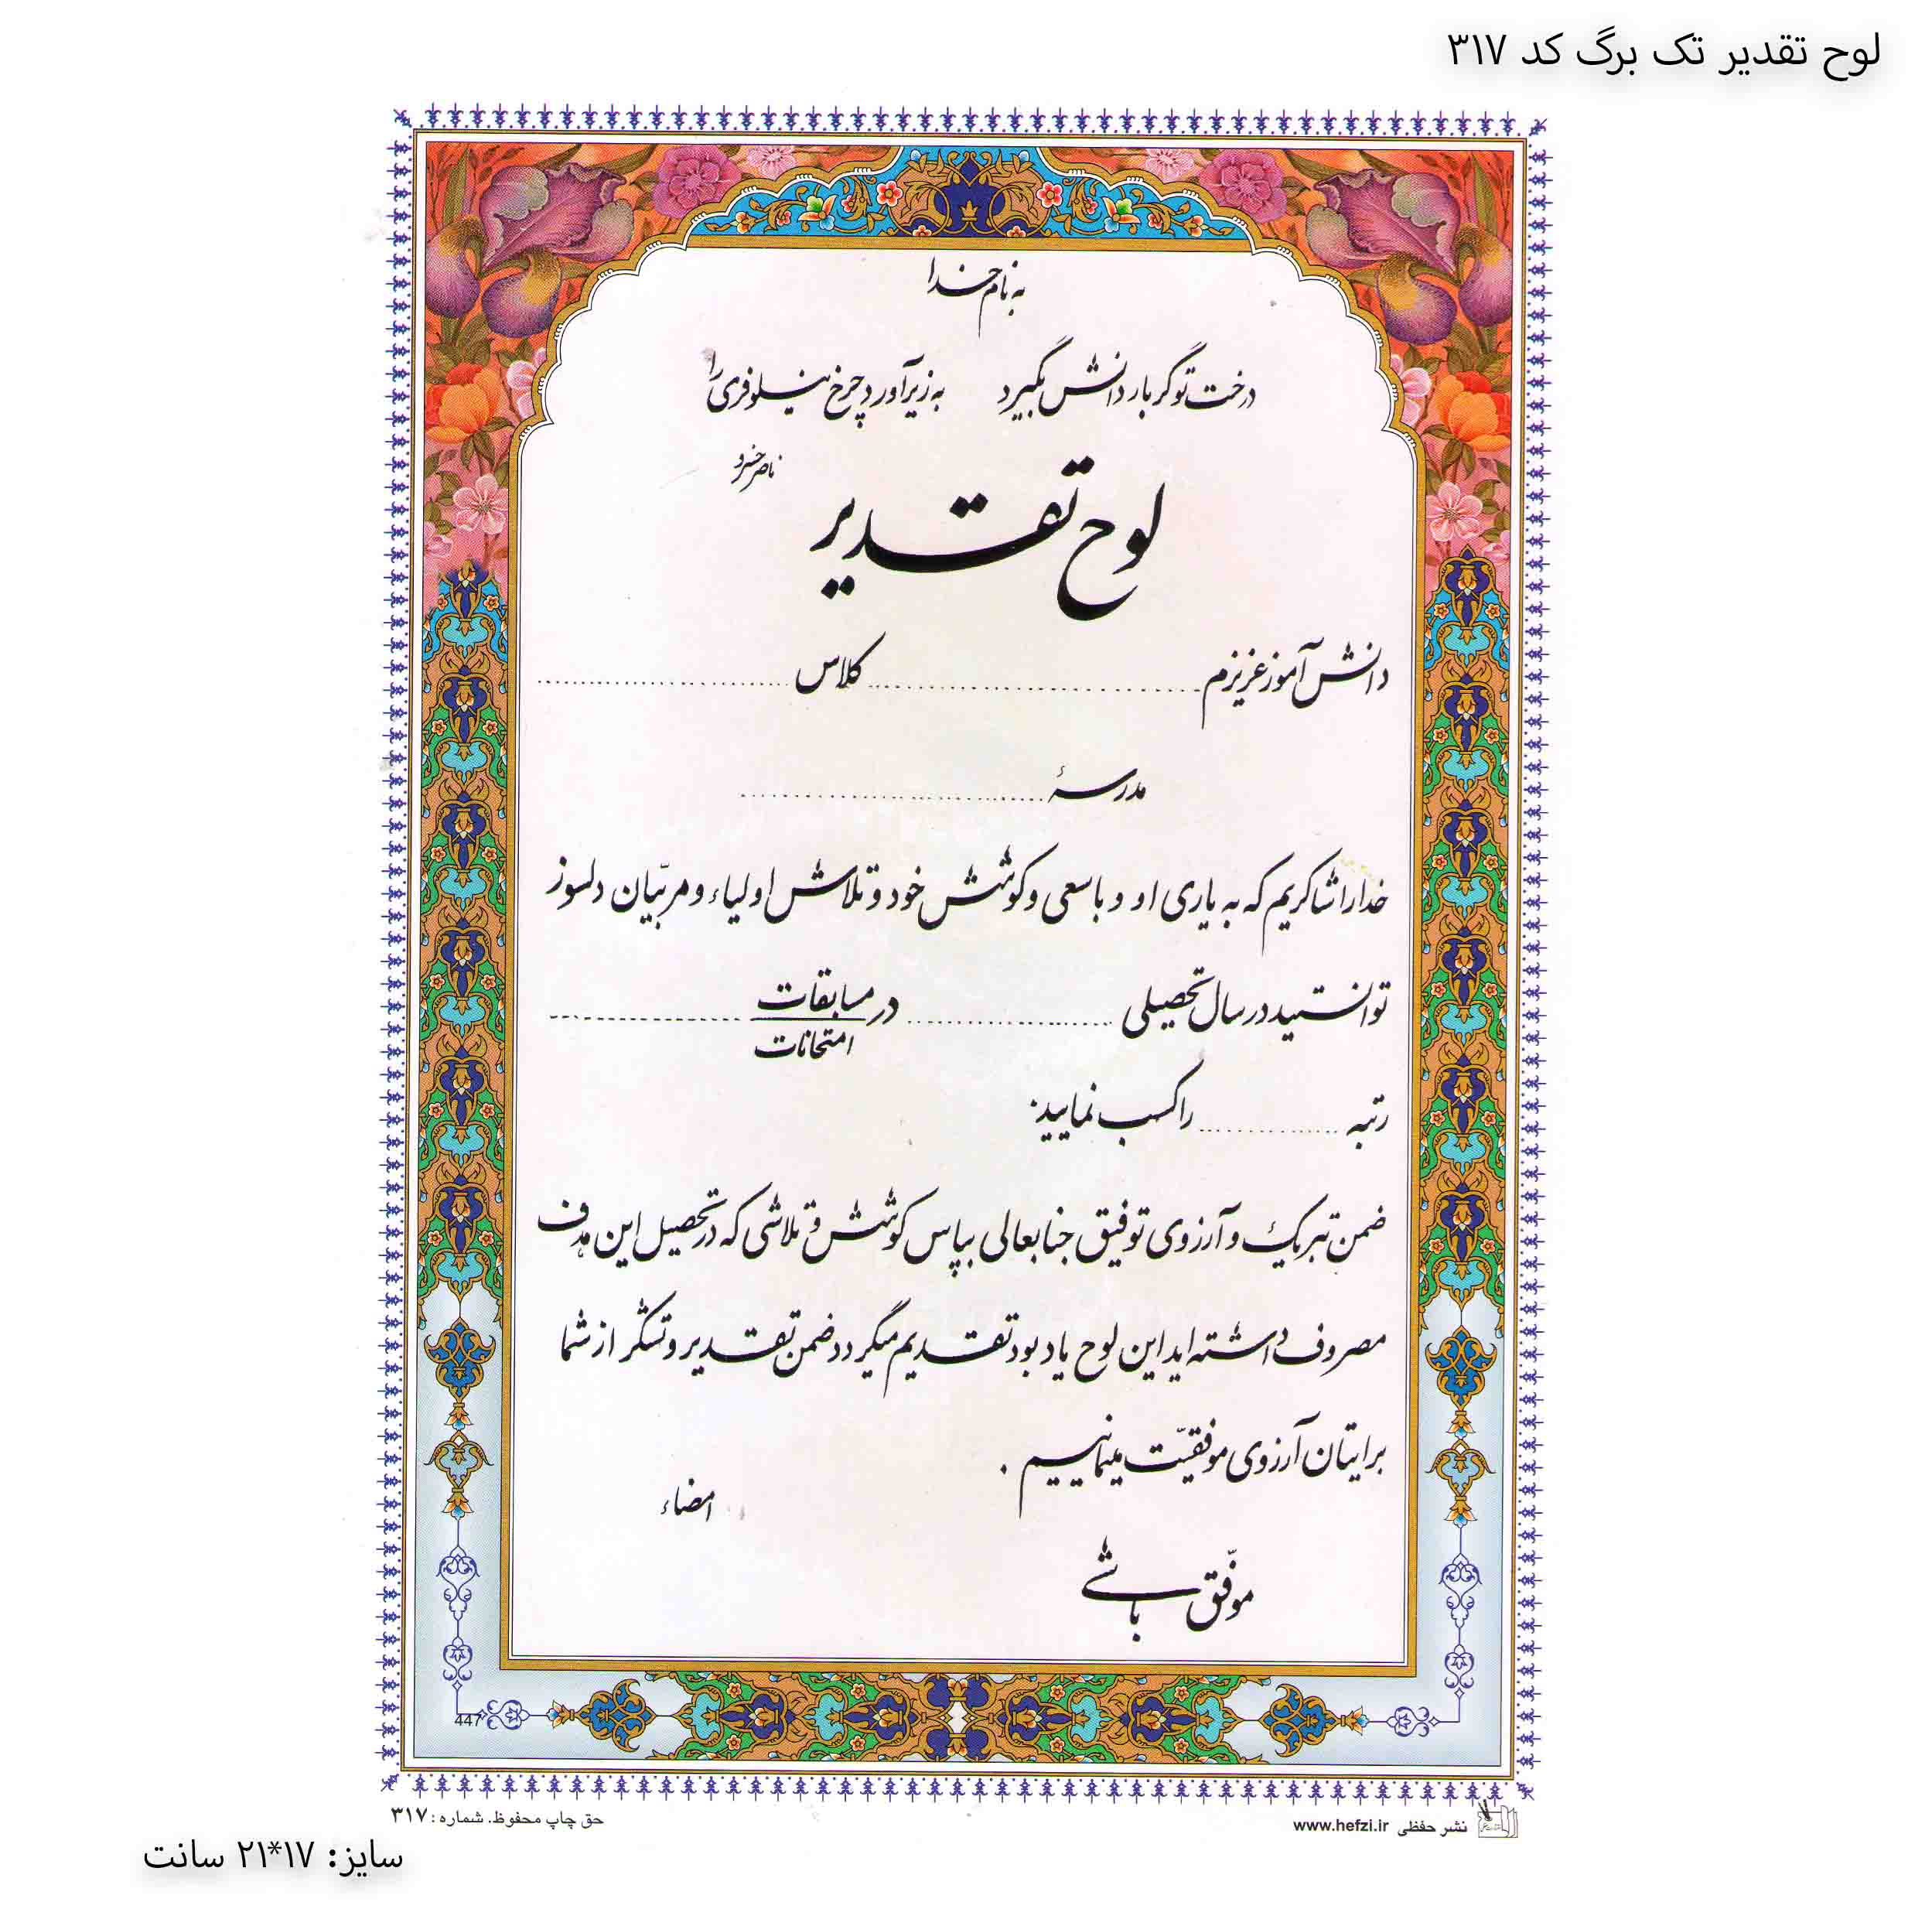 لوح تقدیر تک برگ کد ۳۱۷
به نام خدا
درخت تو گر بار دانش بگیرد به زیر آورد چرخ نیلوفری را
ناصر خسرو
لوح تقدیر
دانش آموز عزیزم ........ کلاس ........
مدرسهٔ ........
خدا را شاکریم که به یاری او و با سعی و کوشش خود و تلاش اولیاء و مربّیان دلسوز
توانستید در سال تحصیلی ........ در مسابقات ........
امتحانات
رتبه ........ را کسب نمایید.
ضمن تبریک و آرزوی توفیق جنابعالی بپاس کوشش و تلاشی که در تحصیل این هدف
مصروف داشته اید این لوح یادبود تقدیم میگردد ضمن تقدیر و تشکر از شما
برایتان آرزوی موفقیّت مینماییم.
امضاء
موفّق باشی
447
حق چاپ محفوظ. شماره: ۳۱۷
نشر حفظی www.hefzi.ir
سایز: ۱۷*۲۱ سانت